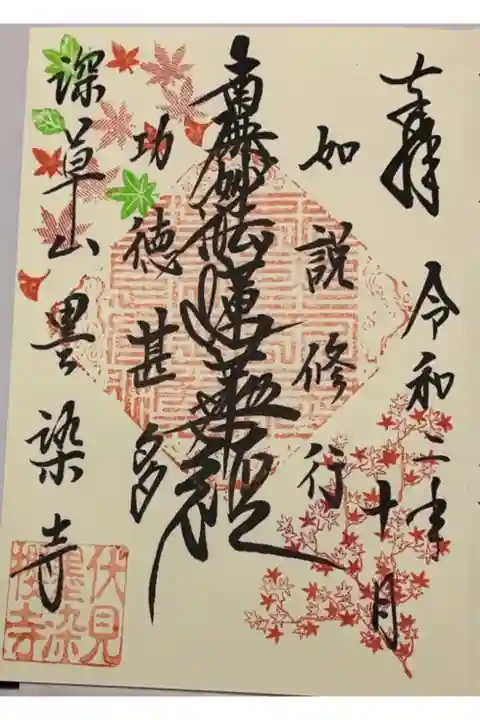 奉拝 令和二年十月
如説修行
南無妙法蓮華経
功徳甚多
深草山墨染寺
伏見
墨染
櫻寺